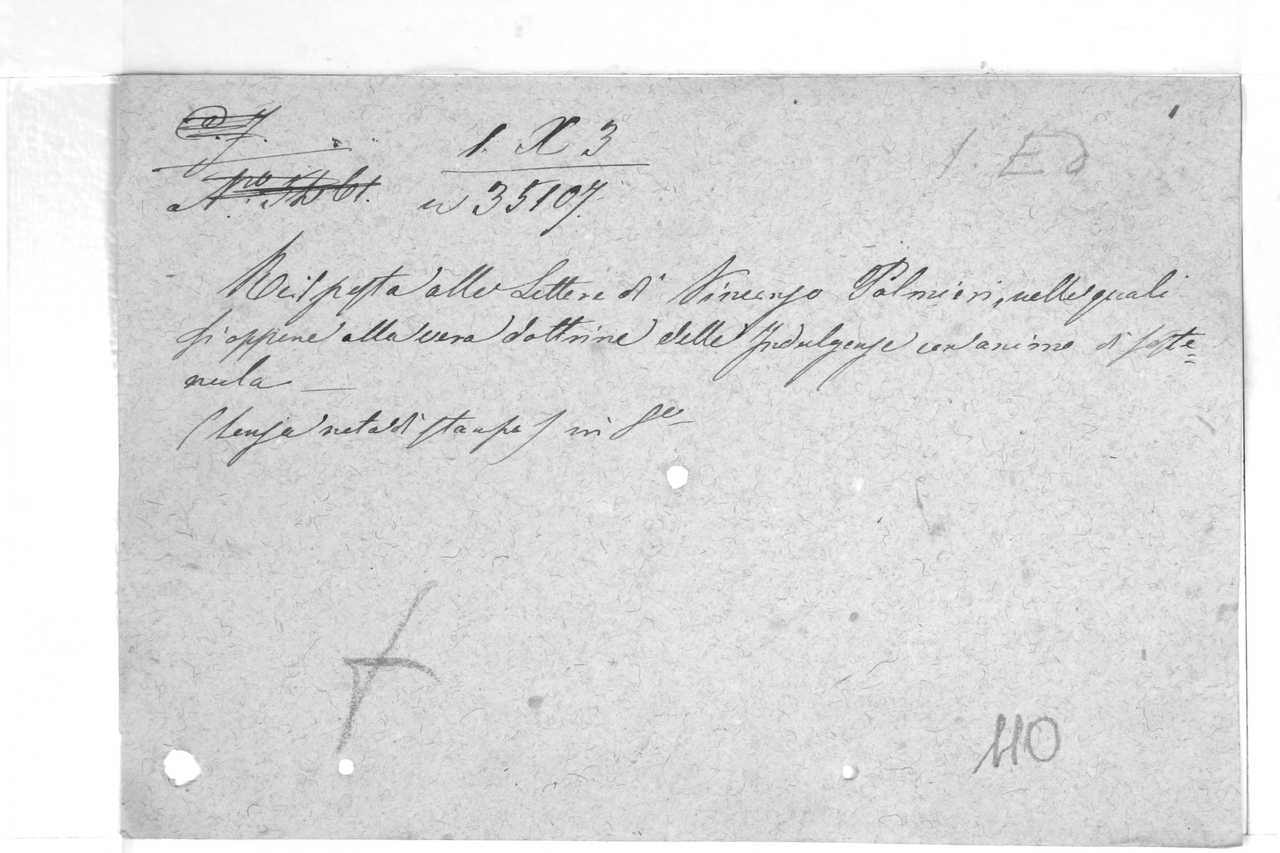 1. X 3
1. Ed
35107.
Risposta alle Lettere di Vincenzo Palmieri, nelle quali
si oppone alla vera dottrina delle Indulgenze con animo di soste=
nerla —
(senza nota di stampa) in 8º
110